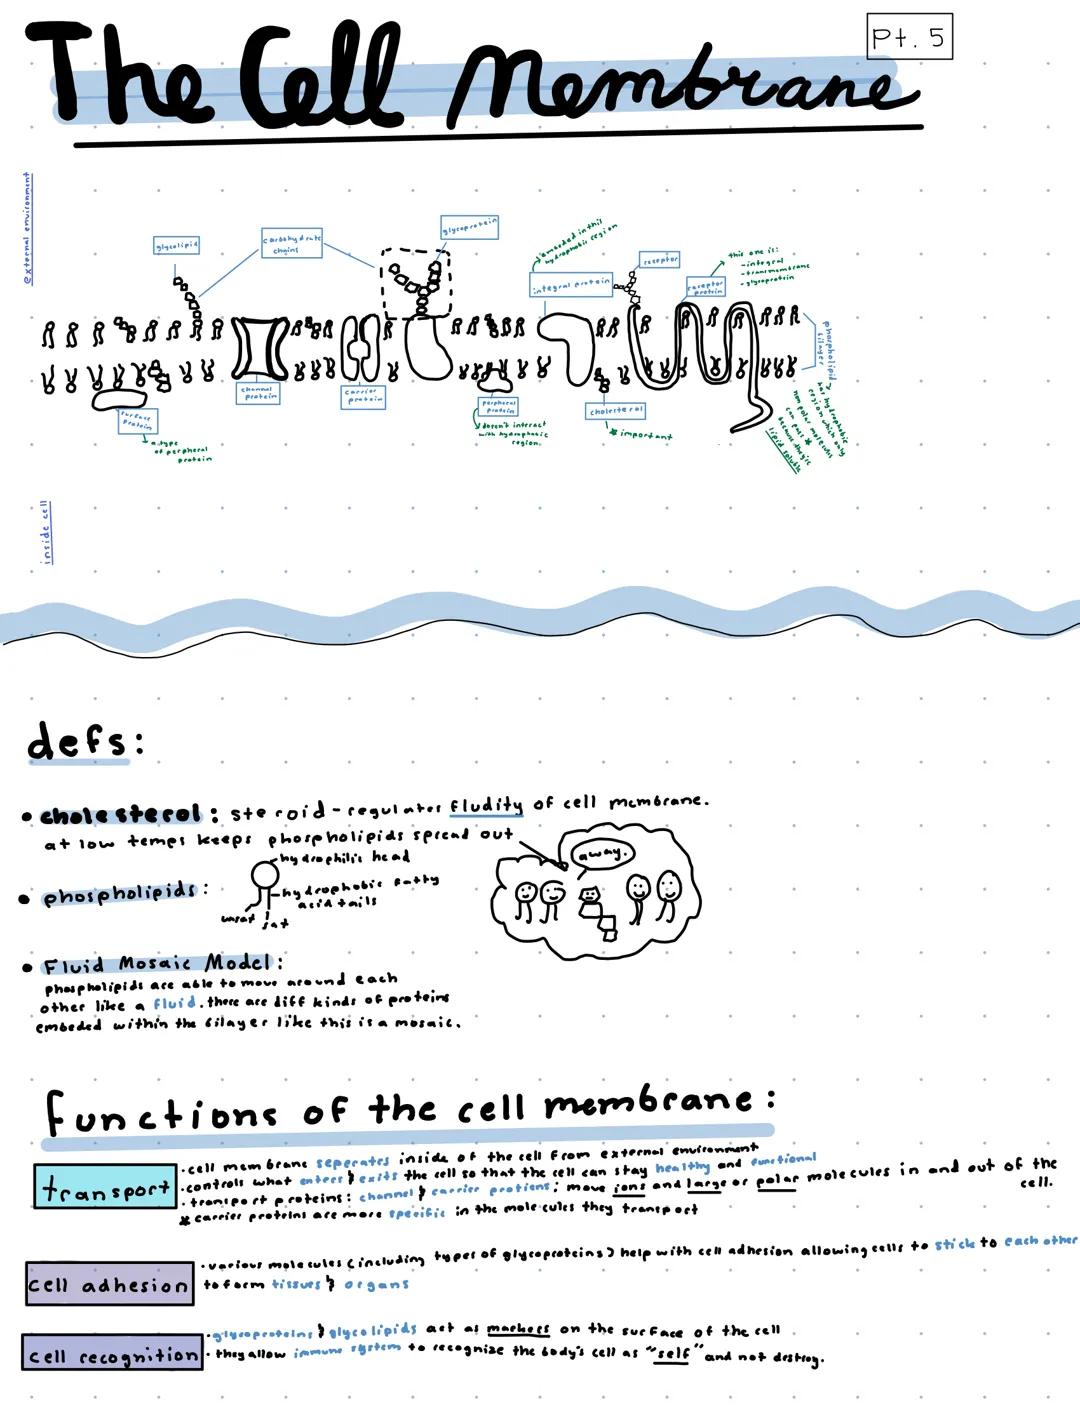 The Cell Membrane
Pt. 5
external environment
glycolipid
carbohydrate
chains
glycoprotein
embeded in thil
hydrophobic region
integral protein
receptor
receptor
protein
this one is:
-integral
-transmembrane
-glycoprotein
phospholipid
bilayer
channel
protein
carrier
protein
surface
protein
a type
of peripheral
protein
peripheral
protein
doesn't interact
with hydrophobic
region.
cholesterol
* important
has hydrophobic
region which only
nonpolar molecules
can pass *
because they're
lipid soluble
inside cell
defs:
• cholesterol: steroid - regulates fludity of cell membrane.
at low temps keeps phospholipids spread out
away.
• phospholipids:
hydrophilic head
hydrophobic fatty
acid tails
unsat
sat
• Fluid Mosaic Model:
phospholipids are able to move around each
other like a fluid. there are diff kinds of proteins
embeded within the bilayer like this is a mosaic.
functions of the cell membrane:
transport
• cell membrane seperates inside of the cell from external environment
• controls what enters & exits the cell so that the cell can stay healthy and functional
• transport proteins: channel & carrier protiens; move ions and large or polar molecules in and out of the
cell.
* carrier proteins are more specific in the molecules they transport
cell adhesion
• various molecules (including types of glycoproteins) help with cell adhesion allowing cells to stick to each other
to form tissues & organs
cell recognition
• glycoproteins & glycolipids act as markers on the surface of the cell
• they allow immune system to recognize the body's cell as "self" and not destroy.